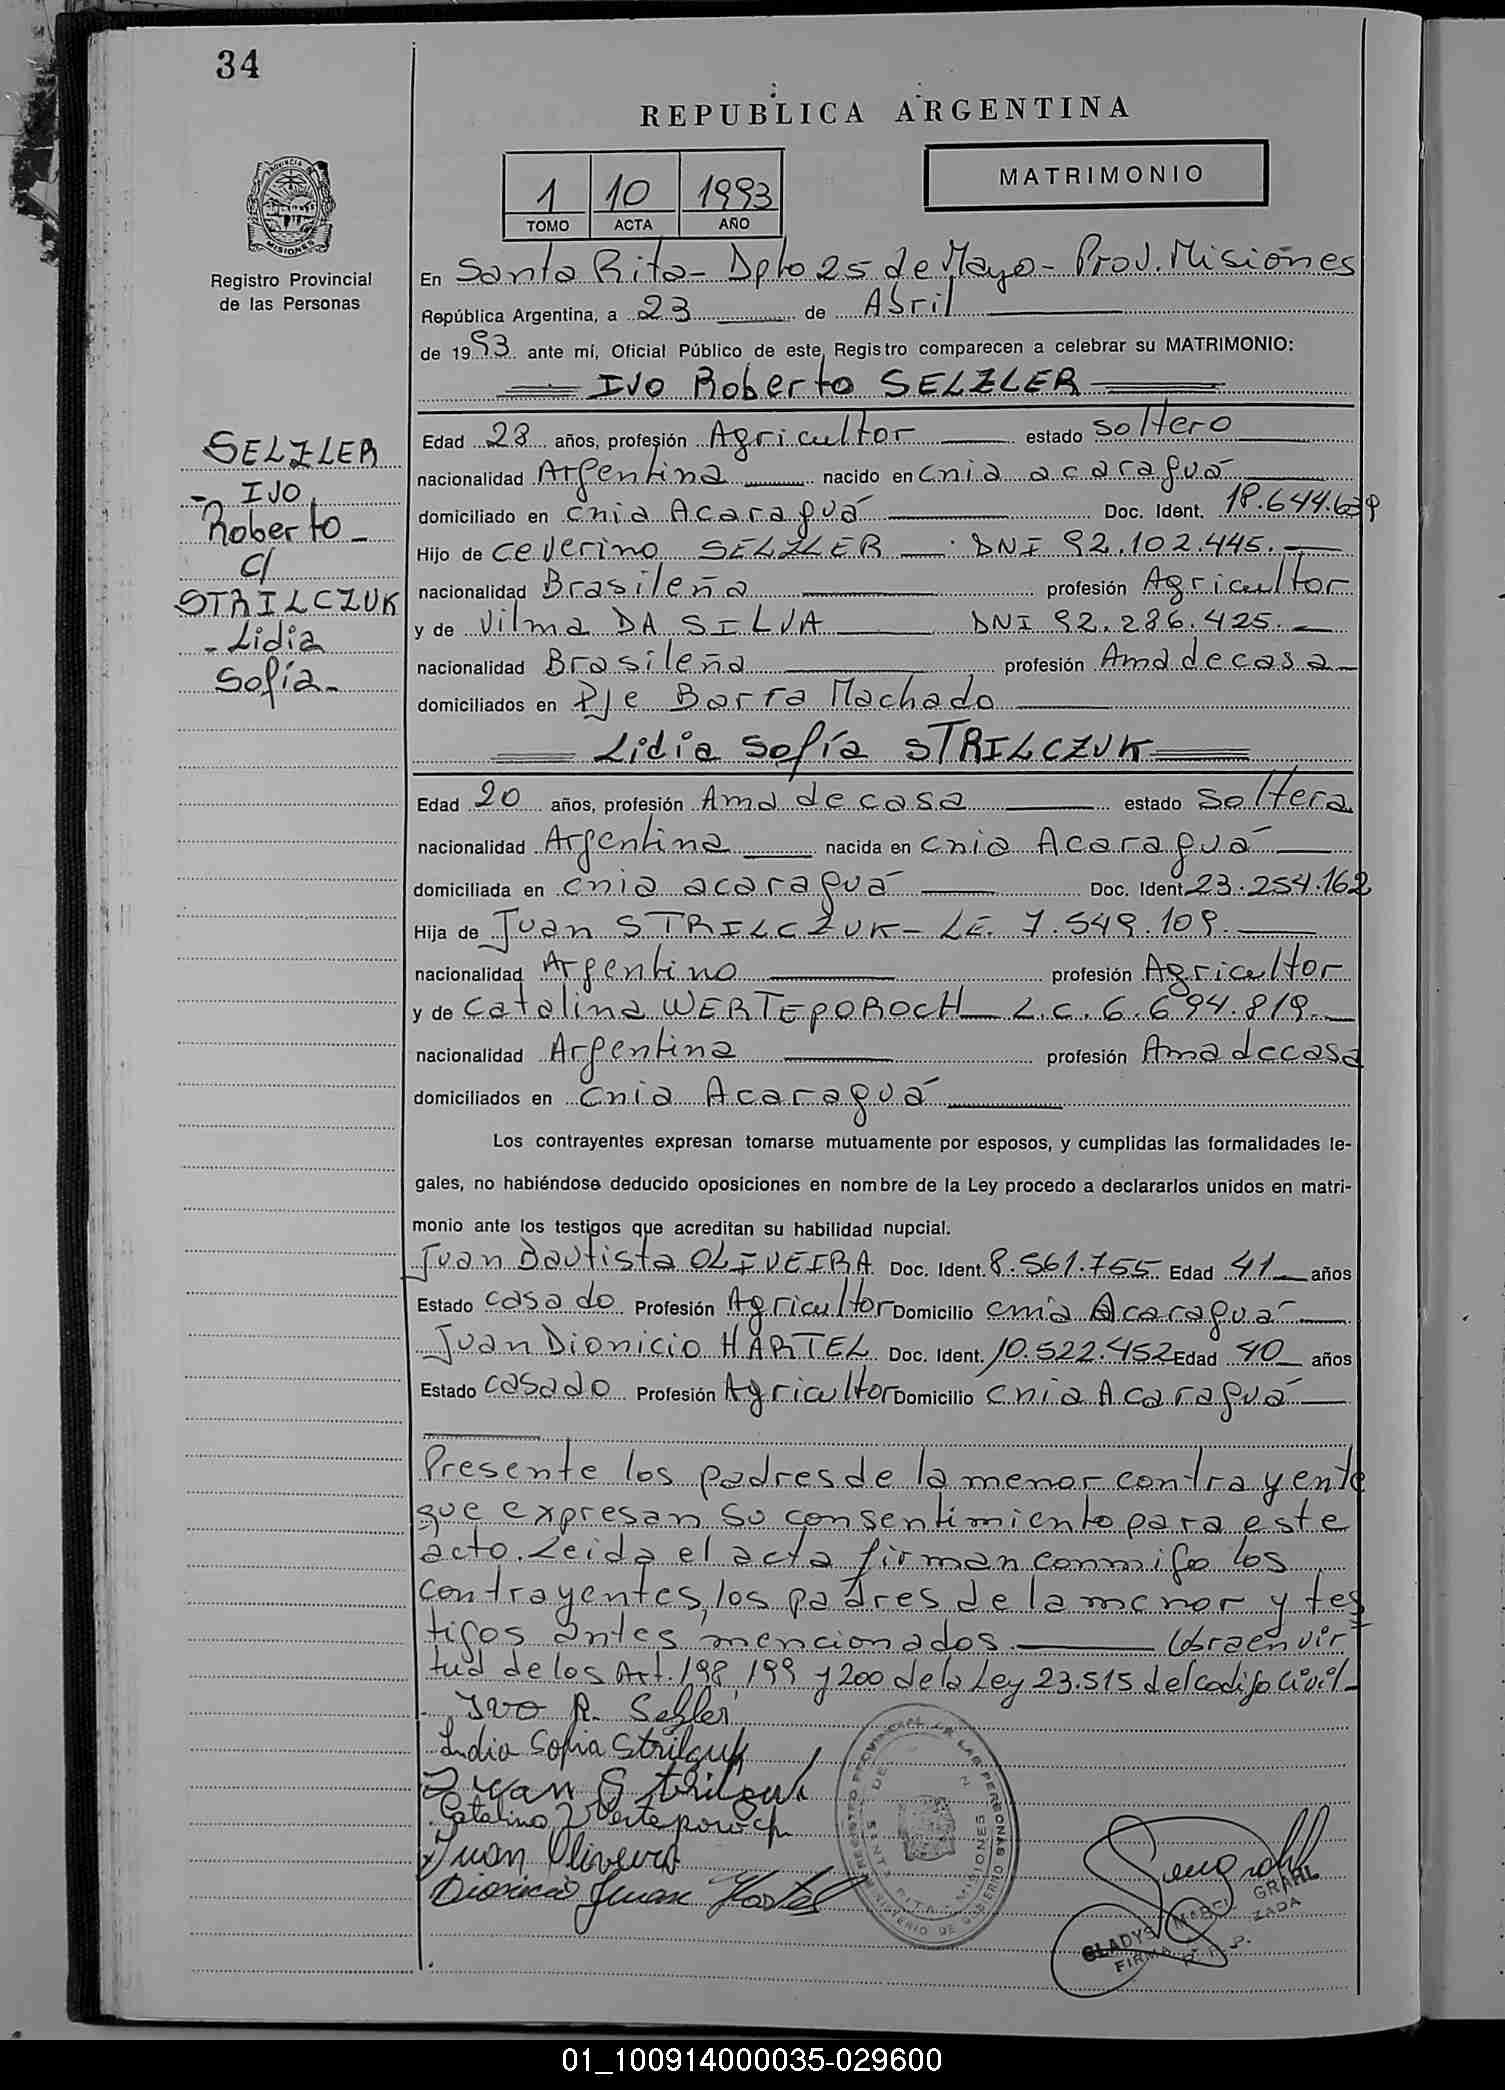 34
REPUBLICA ARGENTINA
MATRIMONIO
1 10 1993
TOMO ACTA AÑO
PROVINCIA DE MISIONES
Registro Provincial
de las Personas
En Santa Rita - Dpto 25 de Mayo - Prov. Misiones
República Argentina, a 23 de Abril
de 1993 ante mí, Oficial Público de este Registro comparecen a celebrar su MATRIMONIO:
Ivo Roberto SELZLER
SELZLER
- IVO
Roberto -
C/
STRILCZUK
- Lidia
Sofía -
Edad 28 años, profesión Agricultor estado soltero
nacionalidad Argentina nacido en cnia acaraguá
domiciliado en cnia Acaraguá Doc. Ident. 18.644.629
Hijo de ceverino SELZLER - DNI 92.102.445.-
nacionalidad Brasileña profesión Agricultor
y de Vilma DA SILVA DNI 92.286.425.-
nacionalidad Brasileña profesión Ama de casa
domiciliados en Pje Barra Machado
Lidia Sofía STRILCZUK
Edad 20 años, profesión Ama de casa estado soltera
nacionalidad Argentina nacida en cnia Acaraguá
domiciliada en cnia acaraguá Doc. Ident. 23.254.162
Hija de Juan STRILCZUK - LE. 7.549.109.
nacionalidad Argentino profesión Agricultor
y de catalina WERTEPOROCH L.C. 6.694.819.-
nacionalidad Argentina profesión Ama de casa
domiciliados en cnia Acaraguá
Los contrayentes expresan tomarse mutuamente por esposos, y cumplidas las formalidades le-
gales, no habiéndose deducido oposiciones en nombre de la Ley procedo a declararlos unidos en matri-
monio ante los testigos que acreditan su habilidad nupcial.
Juan Bautista OLIVEIRA Doc. Ident. 8.561.755 Edad 41 años
Estado casado Profesión Agricultor Domicilio cnia Acaraguá
Juan Dionicio HARTEL Doc. Ident. 10.522.452 Edad 40 años
Estado casado Profesión Agricultor Domicilio cnia Acaraguá
Presente los padres de la menor contrayente
que expresan su consentimiento para este
acto. Leida el acta firman conmigo los
contrayentes, los padres de la menor y tes
tigos antes mencionados. Obra en vir
tud de los Art. 198 199 y 200 de la Ley 23.515 del codigo civil -
Ivo R. Selzler
Lidia Sofia Strilczuk
Juan Strilczuk
Catalina Werteporoch
Juan Oliveira
Dionicio Juan Hartel
REGISTRO PROVINCIAL DE LAS PERSONAS
MINISTERIO DE GOBIERNO
SANTA RITA - MISIONES
GLADYS MABEL GRAHL
FIRMA R. P.
01_100914000035-029600